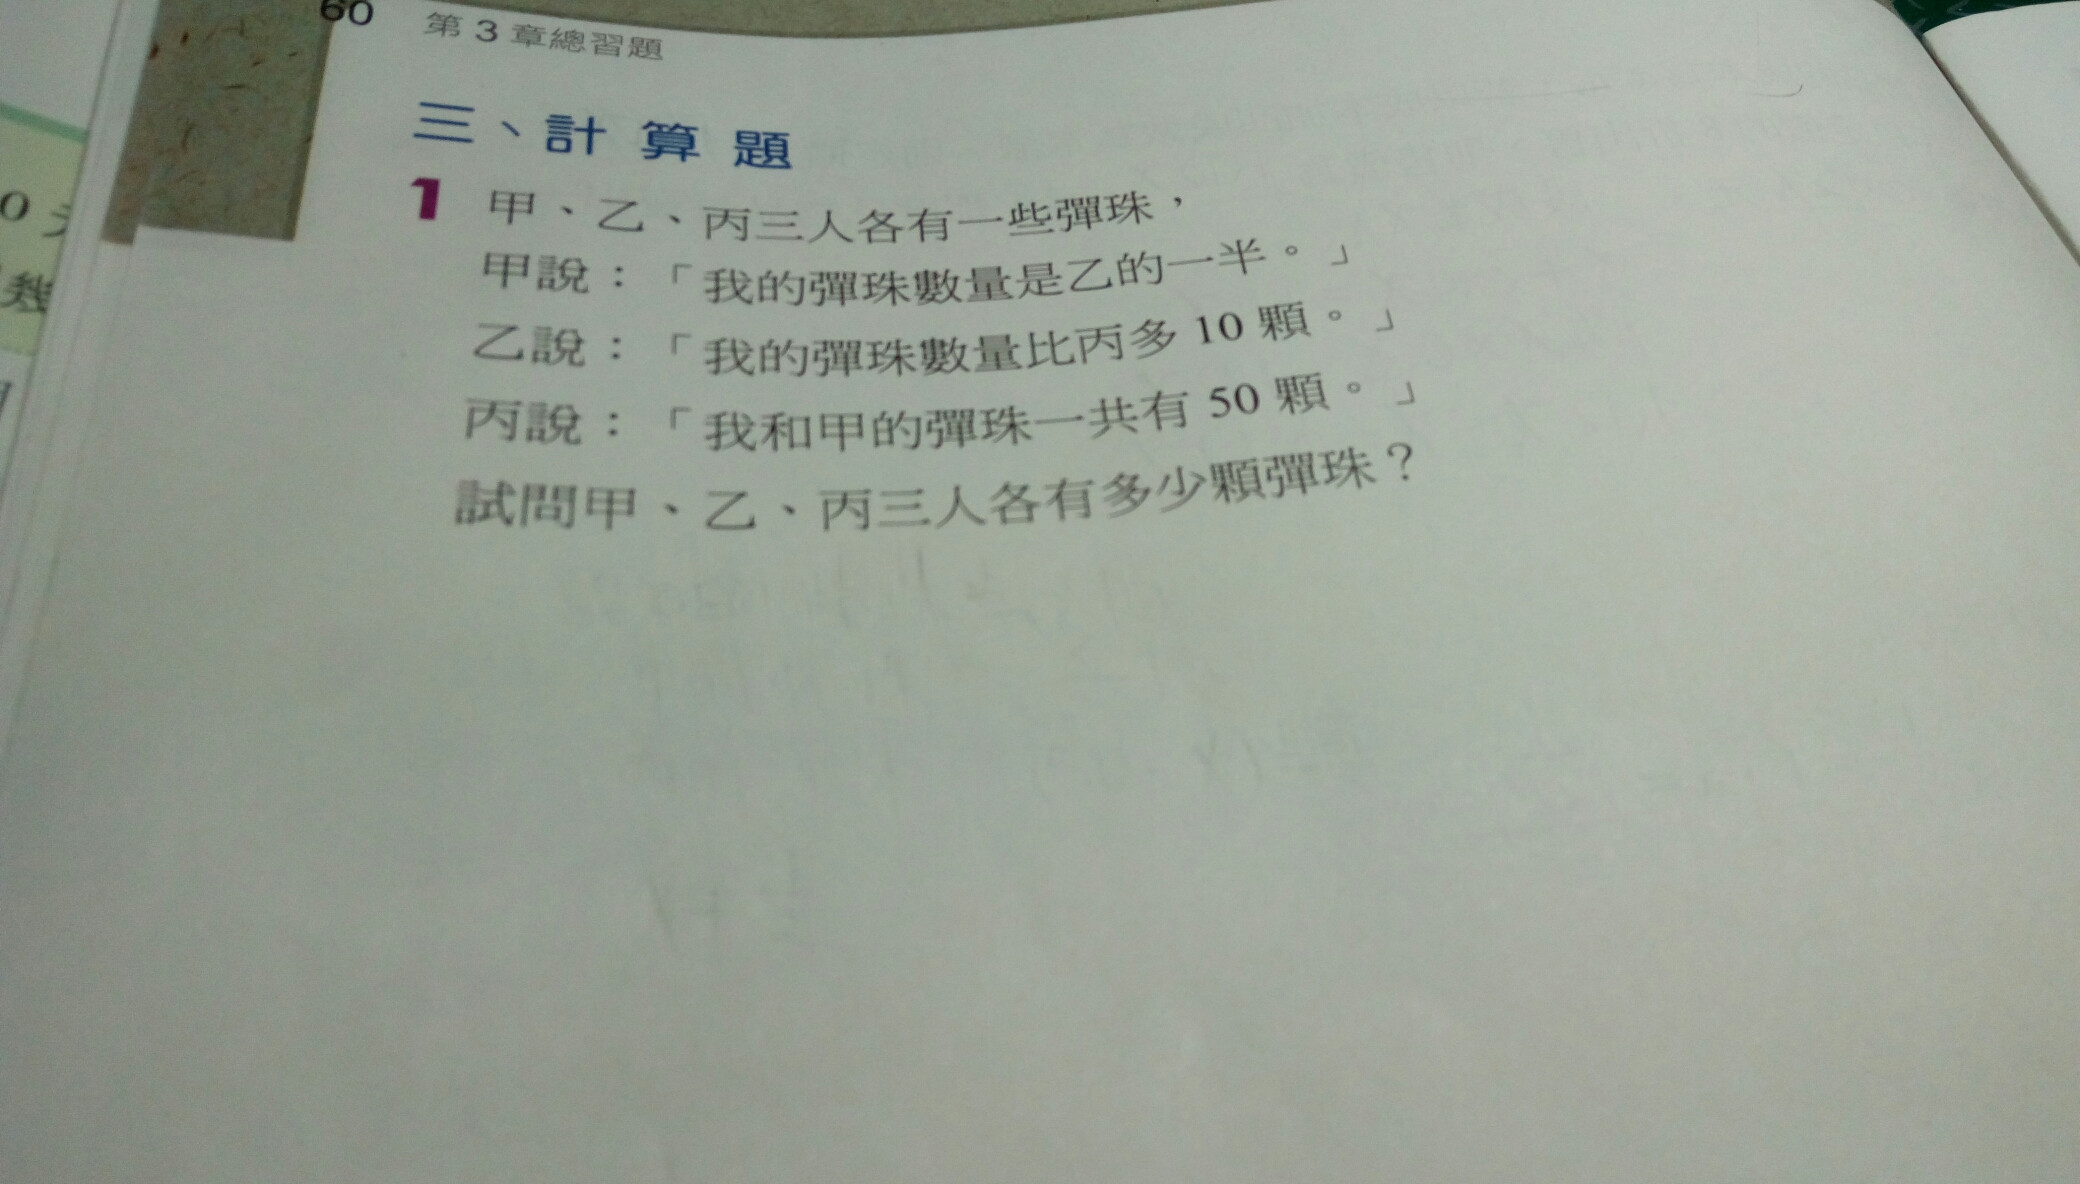 60 第 3 章總習題
三、計算題
1 甲、乙、丙三人各有一些彈珠，
甲說：「我的彈珠數量是乙的一半。」
乙說：「我的彈珠數量比丙多 10 顆。」
丙說：「我和甲的彈珠一共有 50 顆。」
試問甲、乙、丙三人各有多少顆彈珠？